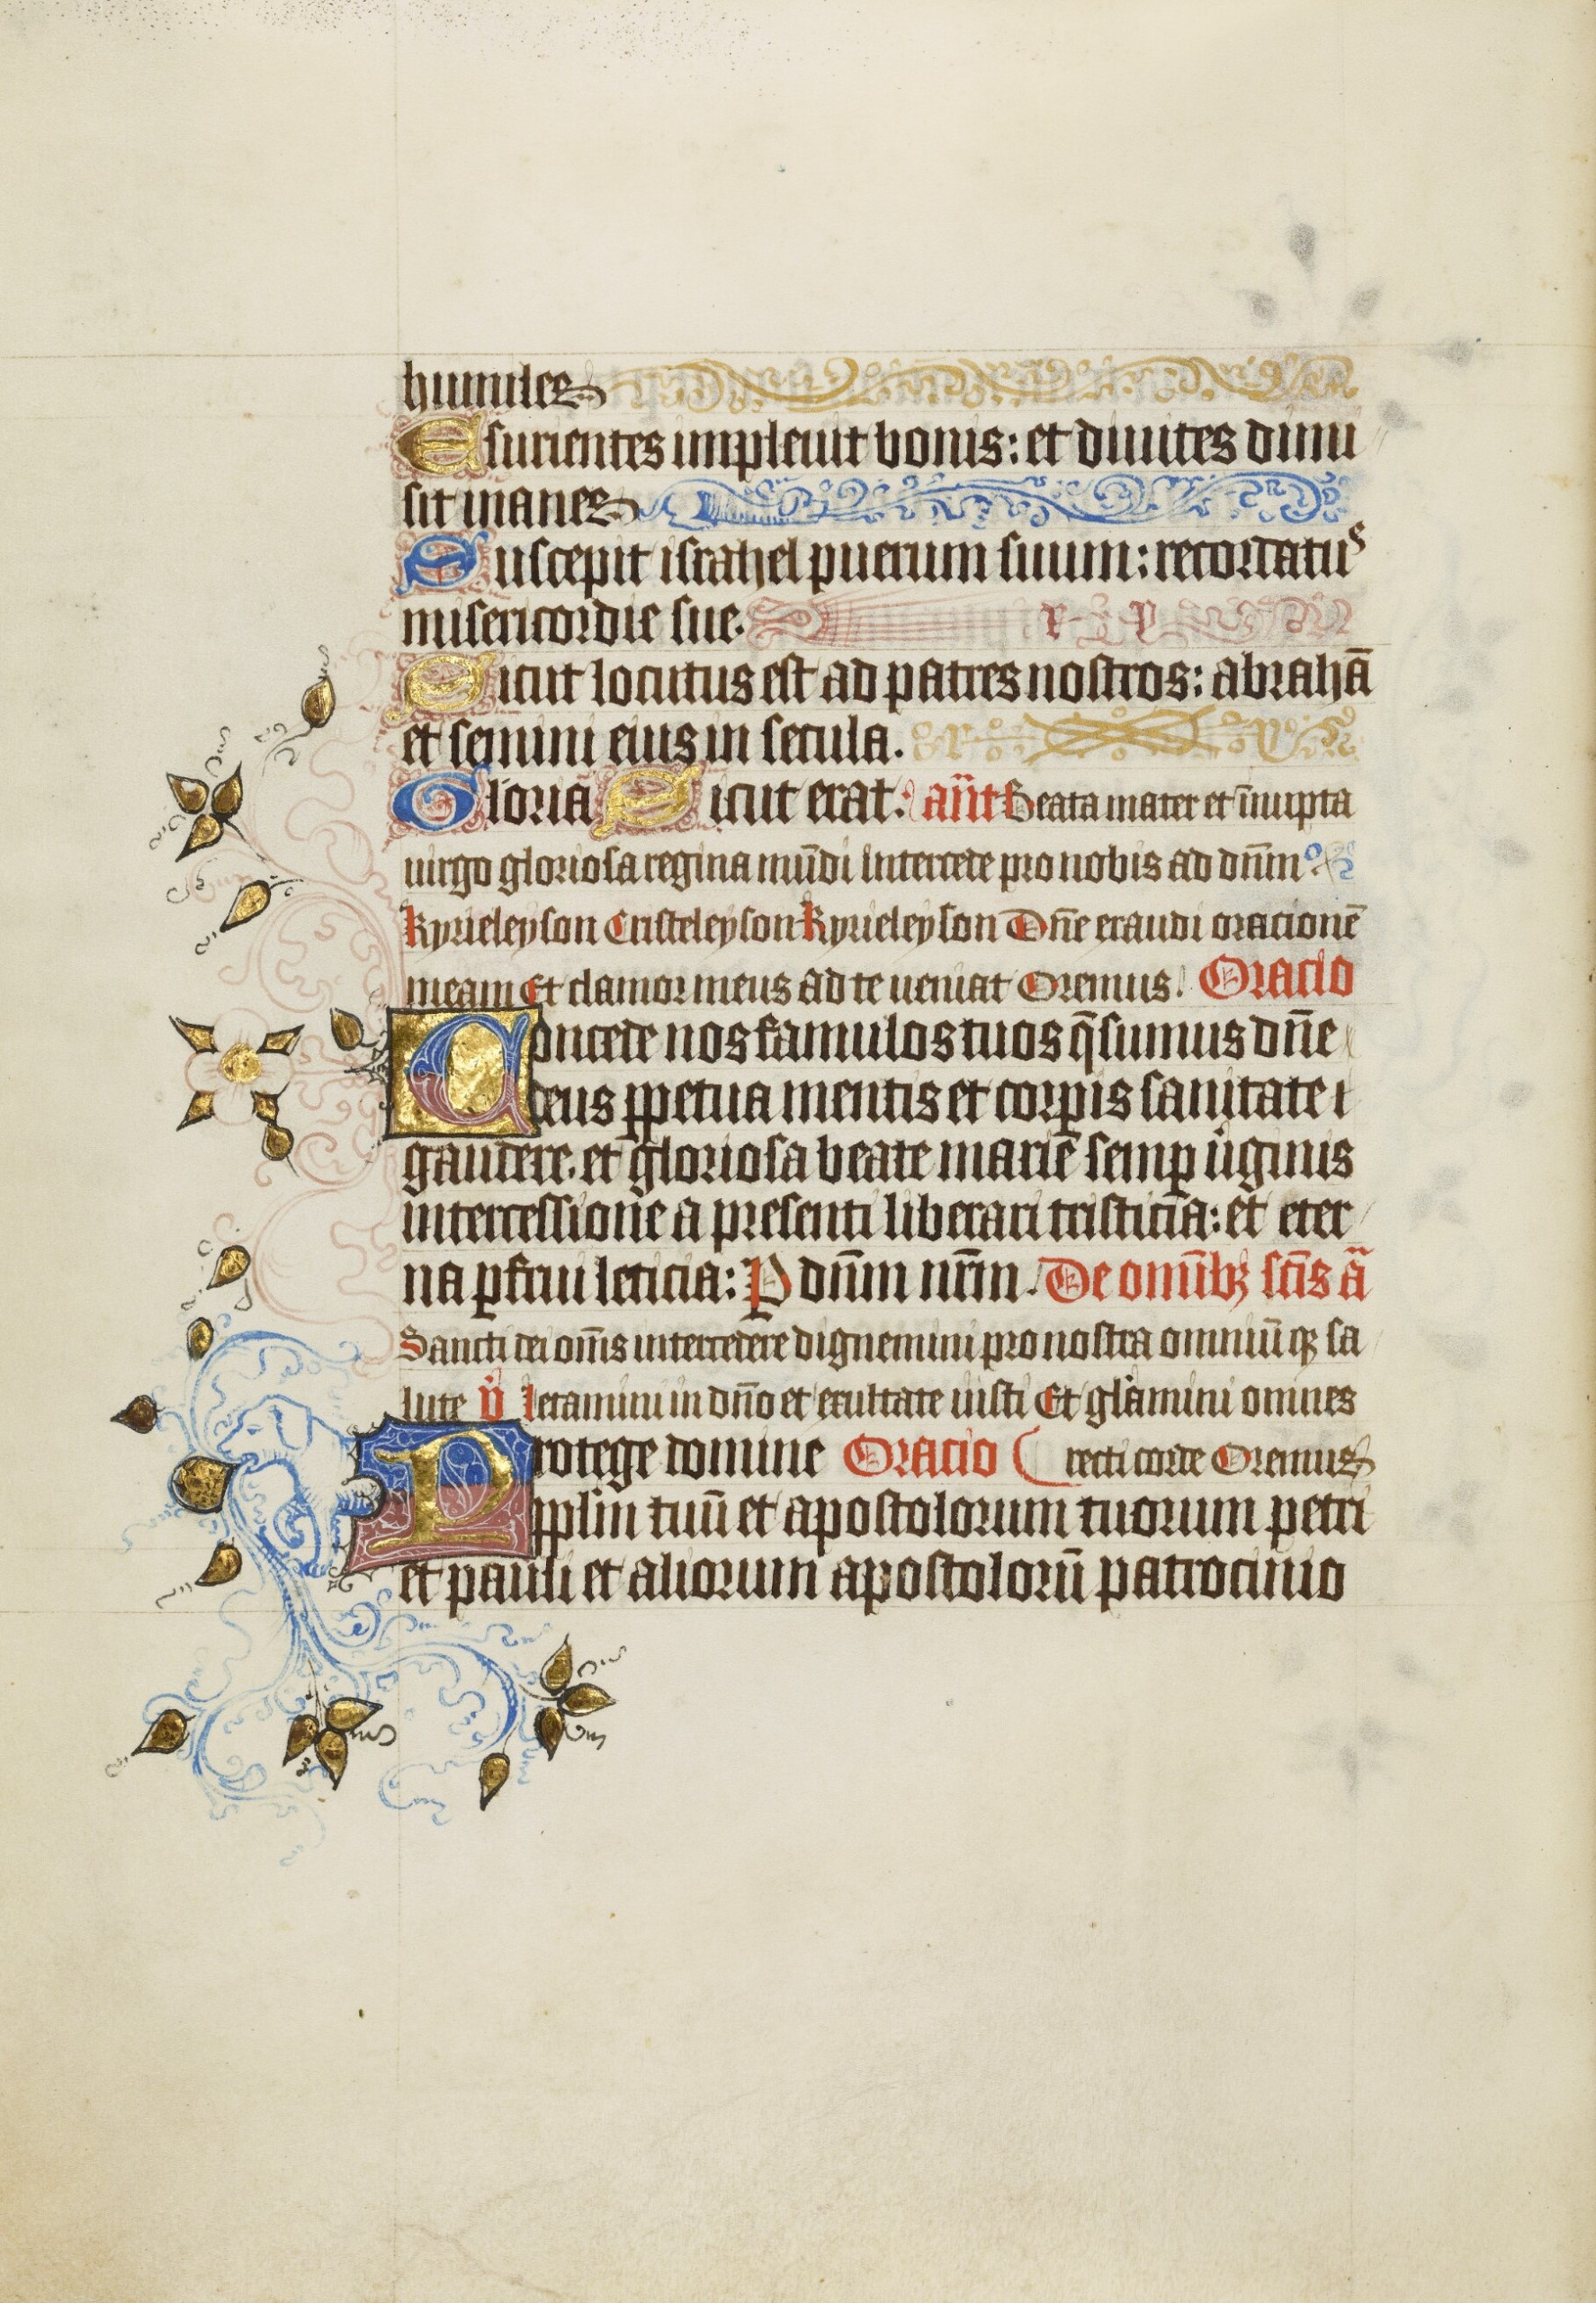 humiles
Esurientes impleuit bonis: et diuites dimi
sit inanes
Suscepit israhel puerum suum: recordatus
misericordie sue.
Sicut locutus est ad patres nostros: abrahā
et semini eius in secula.
Gloria Sicut erat: an̄t Beata mater et īnupta
uirgo gloriosa regina mūdi intercede pro nobis ad dn̄m
kyrieleyson Cristeleyson kyrieleyson Dn̄e exaudi oracionē
meam Et clamor meus ad te ueniat Oremus. Oracio
Concede nos famulos tuos q̄sumus dn̄e
deus ꝑpetua mentis et corꝑis sanitate
gaudere. et gloriosa beate marie semꝑ uͥginis
intercessione a presenti liberari tristicia: et eter
na ꝑfrui leticia: P dn̄m nr̄m. De omībꝫ sc̄is a
Sancti dei om̄s intercedere dignemini pro nostra omniūqꝫ sa
lute v̄ letamini in dn̄o et exultate iusti Et gl̄amini omnes
Protege domine Oracio recti corde Oremus
ꝑplm tuū et apostolorum tuorum petri
et pauli et aliorum apostolorū patrocinio